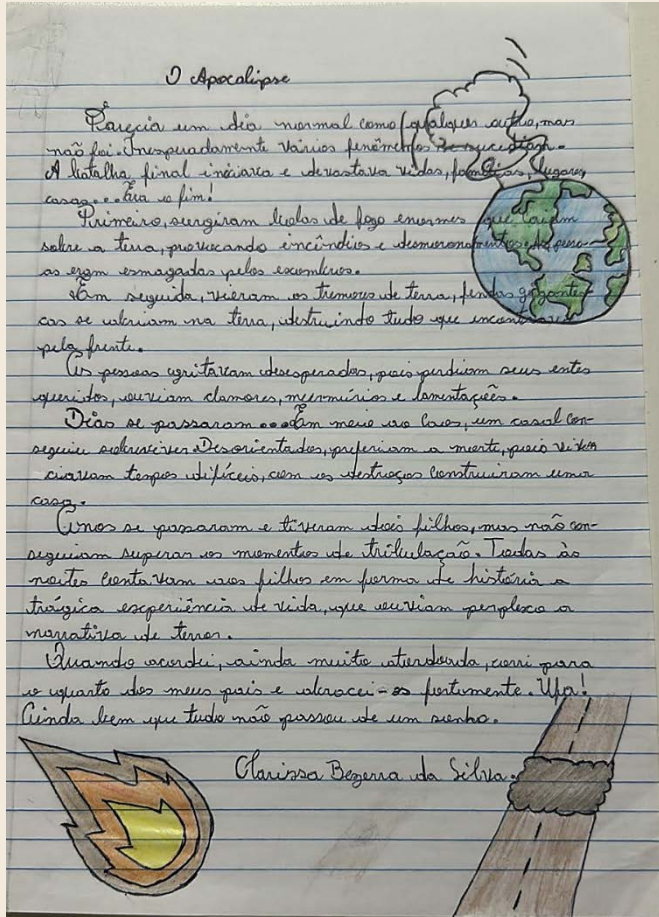 O Apocalipse
Parecia um dia normal como qualquer outro, mas
não foi. Inesperadamente vários fenômenos se sucediam.
A batalha final iniciara e devastava vidas, famílias, lugares,
casas... Era o fim!
Primeiro, surgiram bolas de fogo enormes que caiam
sobre a terra, provocando incêndios e desmoronamentos
as eram esmagadas pelos escombros.
Em seguida, vieram os tremores de terra, fendas gigantes-
cas se abriam na terra, destruindo tudo que encontrava
pela frente.
As pessoas gritavam desesperadas, pois perdiam seus entes
queridos, ouviam clamores, murmúrios e lamentações.
Dias se passaram... Em meio ao caos, um casal con-
seguiu sobreviver. Desorientados, preferiam a morte, pois viven-
ciavam tempos difíceis, com os destroços construiram uma
casa.
Anos se passaram e tiveram dois filhos, mas não con-
seguiam superar os momentos de tribulação. Todas às
noites contavam aos filhos em forma de história a
trágica experiência de vida, que ouviam perplexo a
narrativa de terror.
Quando acordei, ainda muito atordoada, corri para
o quarto dos meus pais e abracei-os fortemente. Ufa!
Ainda bem que tudo não passou de um sonho.
Clarissa Bezerra da Silva.